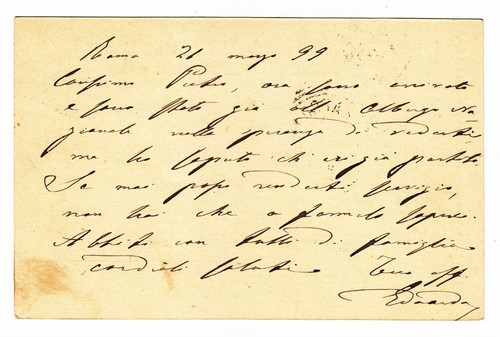 Roma 26 marzo 99
Carissimo Pietro, ora sono arrivato
e sono stato già all' Albergo Na-
zionale nella speranza di vederti
ma ho saputo ch' eri già partito.
Se mai posso renderti servigio,
non hai che a farmelo sapere.
Abbiti con tutti di famiglia
cordiali saluti Tuo aff
Edoardo